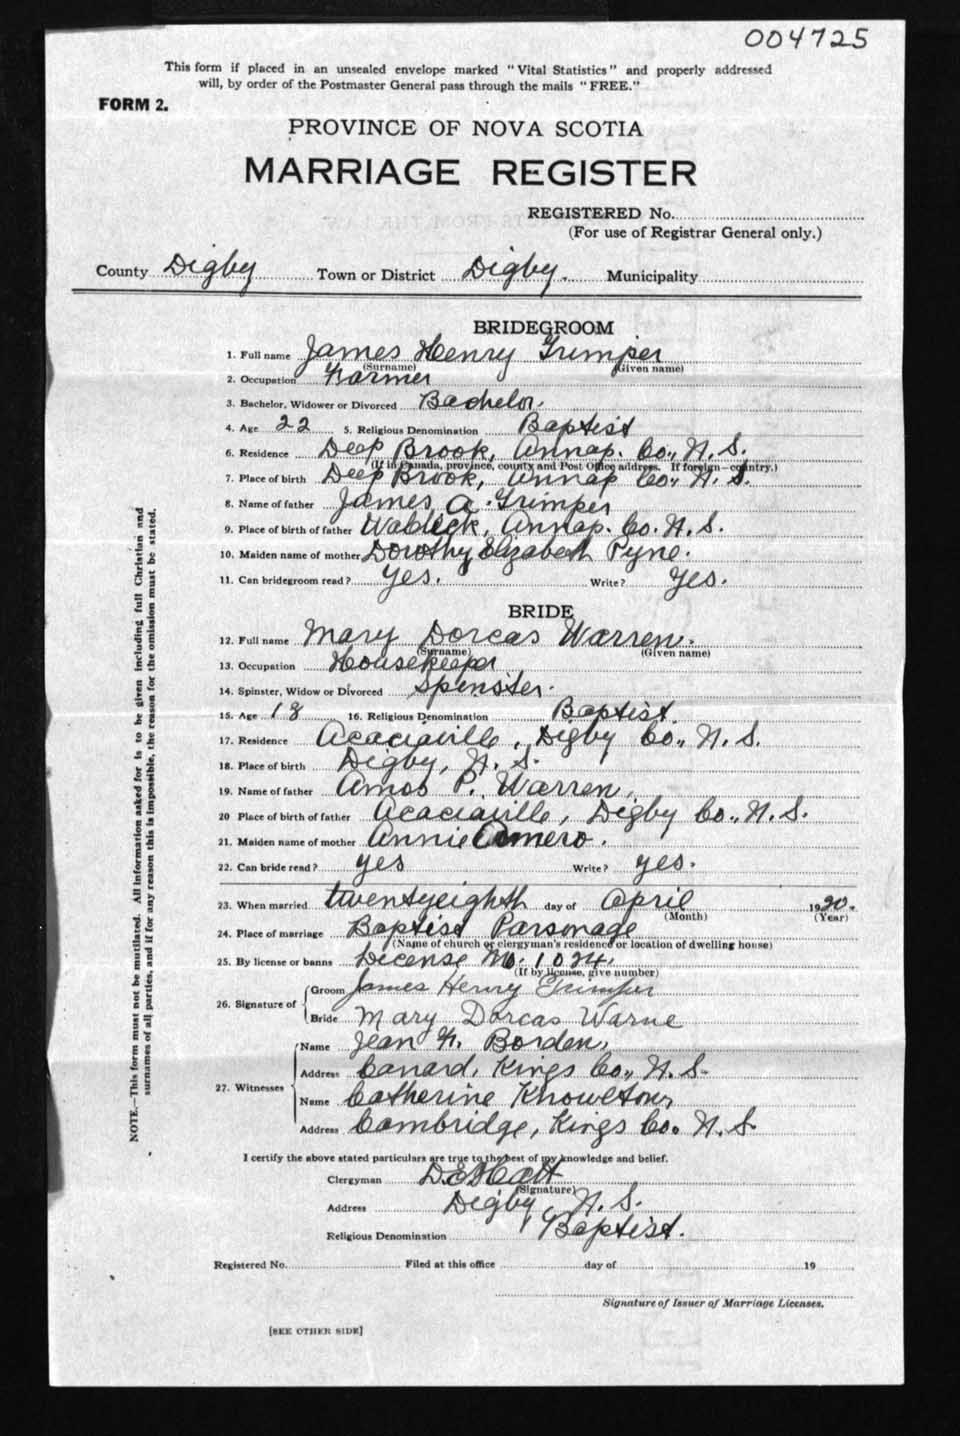 004725
This form if placed in an unsealed envelope marked "Vital Statistics" and properly addressed
will, by order of the Postmaster General pass through the mails "FREE."
FORM 2.
PROVINCE OF NOVA SCOTIA
MARRIAGE REGISTER
REGISTERED No.
(For use of Registrar General only.)
County Digby Town or District Digby. Municipality
BRIDEGROOM
1. Full name James Henry Trimper
(Surname) (Given name)
2. Occupation Farmer
3. Bachelor, Widower or Divorced Bachelor.
4. Age 22 5. Religious Denomination Baptist
6. Residence Deep Brook, Annap. Co., N. S.
(If in Canada, province, county and Post Office address. If foreign—country.)
7. Place of birth Deep Brook, Annap Co., N. S.
8. Name of father James A. Trimper
9. Place of birth of father Waldeck, Annap. Co. N. S.
10. Maiden name of mother Dorothy Elizabeth Pyne.
11. Can bridegroom read? Yes. Write? Yes.
BRIDE
12. Full name Mary Dorcas Warren.
(Surname) (Given name)
13. Occupation Housekeeper
14. Spinster, Widow or Divorced Spinster.
15. Age 18 16. Religious Denomination Baptist.
17. Residence Acaciaville, Digby Co., N. S.
18. Place of birth Digby, N. S.
19. Name of father Amos P. Warren,
20 Place of birth of father Acaciaville, Digby Co., N. S.
21. Maiden name of mother Annie Amero.
22. Can bride read? yes Write? yes.
23. When married twentyeighth day of April 1920.
(Month) (Year)
24. Place of marriage Baptist Parsonage
(Name of church or clergyman's residence or location of dwelling house)
25. By license or banns License No. 1024.
(If by license, give number)
26. Signature of Groom James Henry Trimper
Bride Mary Dorcas Warne
27. Witnesses Name Jean H. Borden,
Address Canard, Kings Co., N. S.
Name Catherine Knowlton,
Address Cambridge, Kings Co. N. S.
I certify the above stated particulars are true to the best of my knowledge and belief.
Clergyman
(Signature)
Address Digby, N. S.
Religious Denomination Baptist.
Registered No. Filed at this office day of 19
Signature of Issuer of Marriage Licenses.
[SEE OTHER SIDE]
NOTE.—This form must not be mutilated. All information asked for is to be given including full Christian and
surnames of all parties, and if for any reason this is impossible, the reason for the omission must be stated.